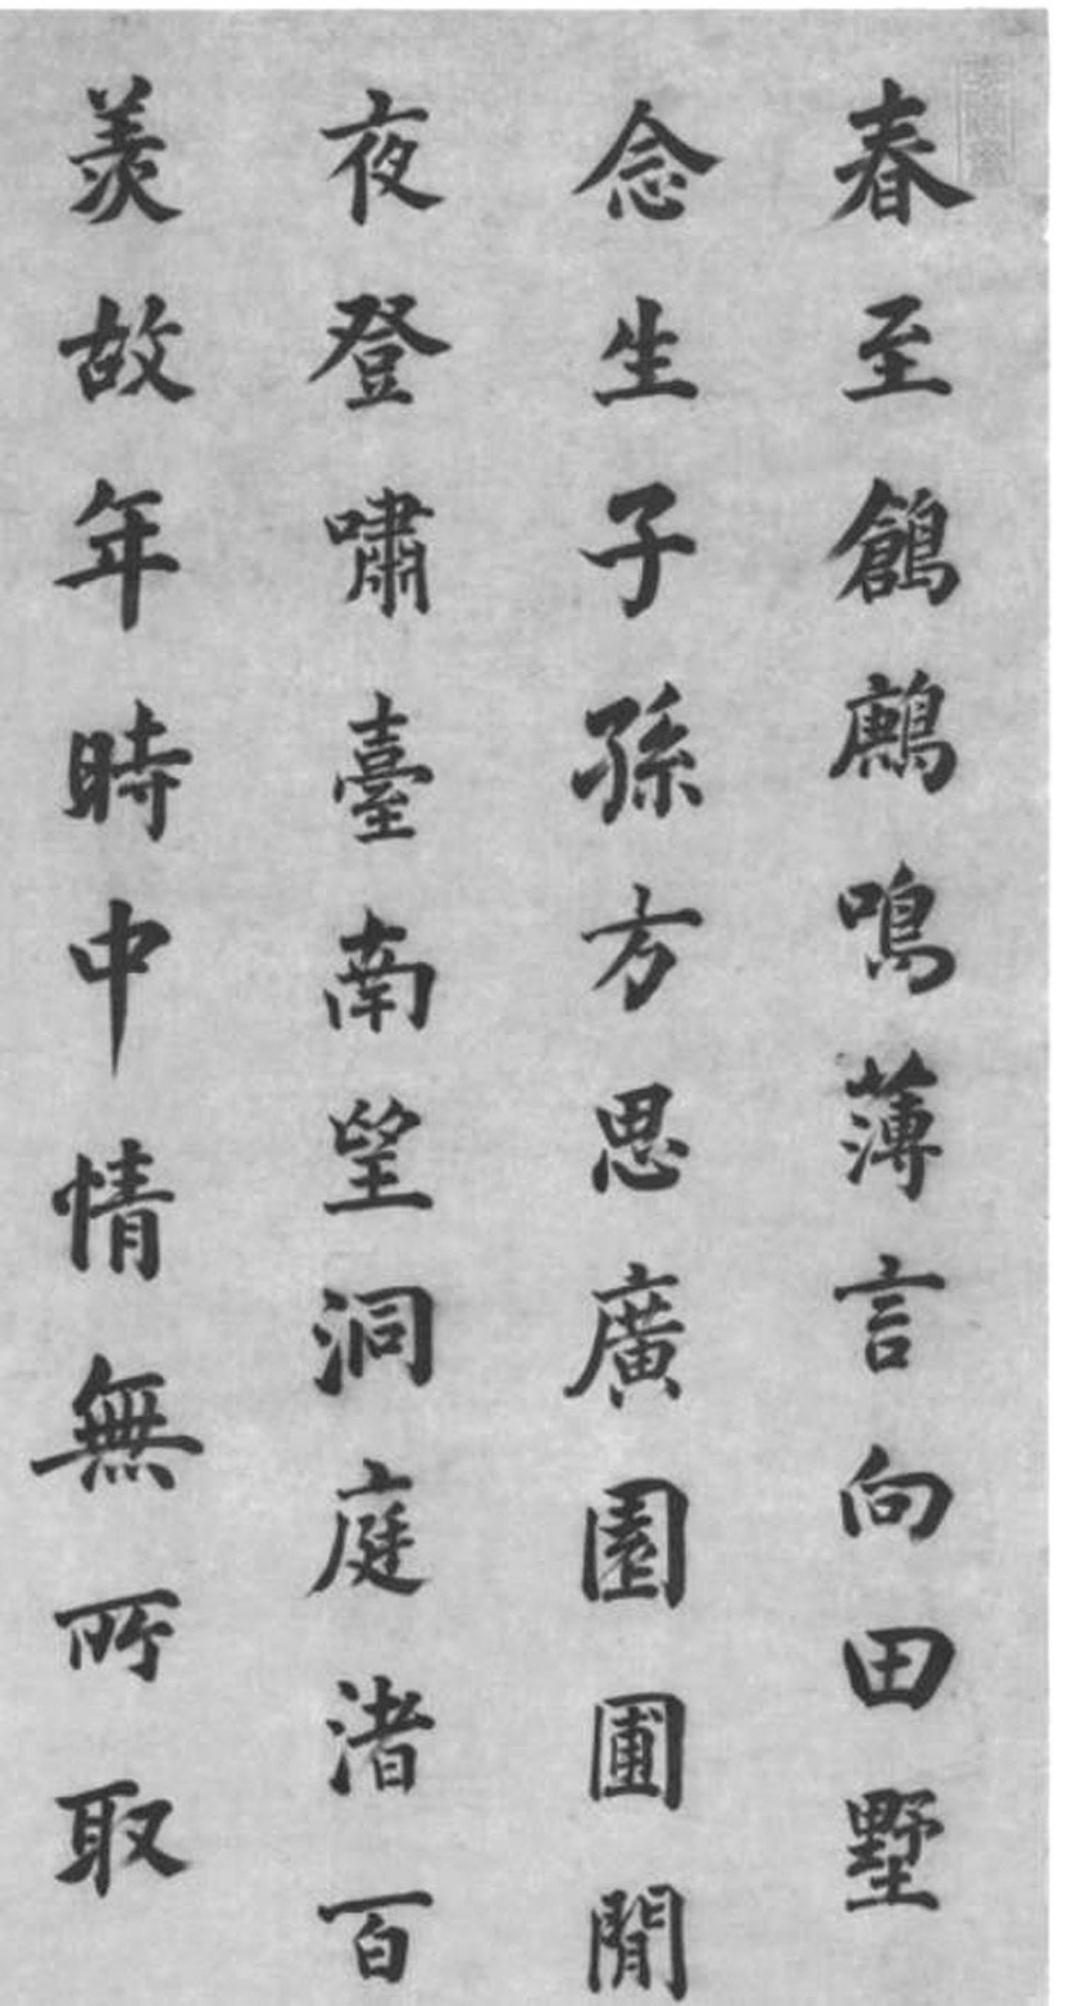 春至鶬鶊鳴薄言向田墅
念生子孫方思廣園圃閒
夜登嘯臺南望洞庭渚百
羨故年時中情無所取